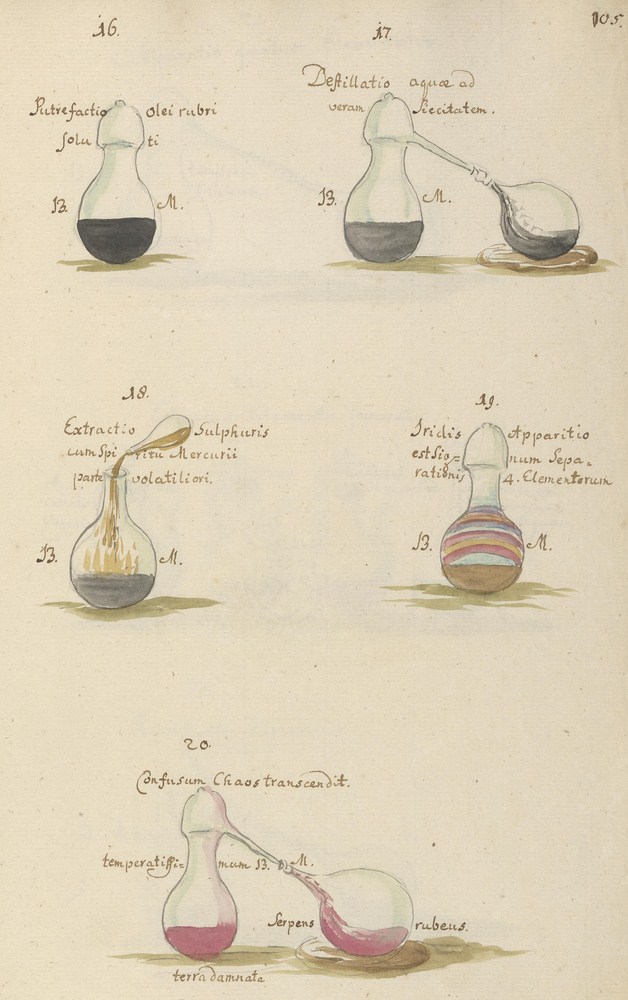 105.
16.
Putrefactio olei rubri
soluti
B. M.
17.
Destillatio aquæ ad
veram Siccitatem.
B. M.
18.
Extractio Sulphuris
cum Spiritu Mercurii
parte volatiliori.
B. M.
19.
Iridis Apparitio
est Sig=num Sepa=
rationis 4. Elementorum
B. M.
20.
Confusum Chaos transcendit.
temperatissi=mum B. M.
Serpens rubeus.
terra damnata